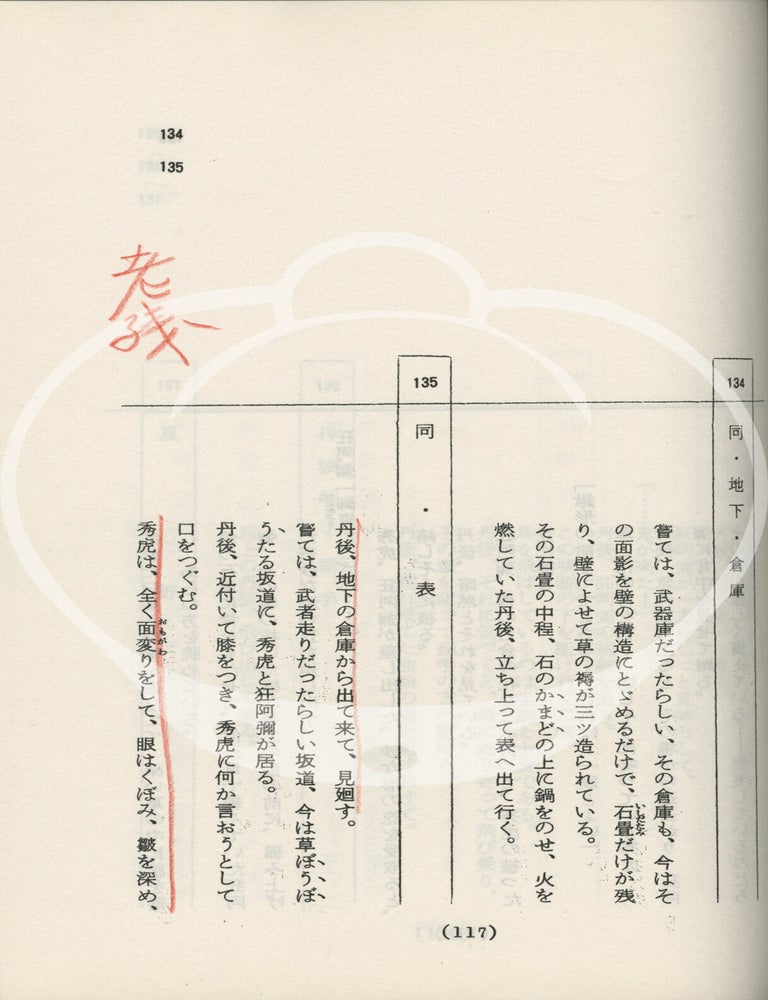 134
135
老残
134
同・地下・倉庫
嘗ては、武器庫だったらしい、その倉庫も、今はそ
の面影を壁の構造にとゞめるだけで、石畳だけが残
いしだたみ
り、壁によせて草の褥が三ツ造られている。
その石畳の中程、石のかまどの上に鍋をのせ、火を
燃していた丹後、立ち上って表へ出て行く。
135
同・表
丹後、地下の倉庫から出て来て、見廻す。
嘗ては、武者走りだったらしい坂道、今は草ぼうぼ
うたる坂道に、秀虎と狂阿彌が居る。
丹後、近付いて膝をつき、秀虎に何か言おうとして
口をつぐむ。
秀虎は、全く面変りをして、眼はくぼみ、皺を深め、
おもがわ
(117)